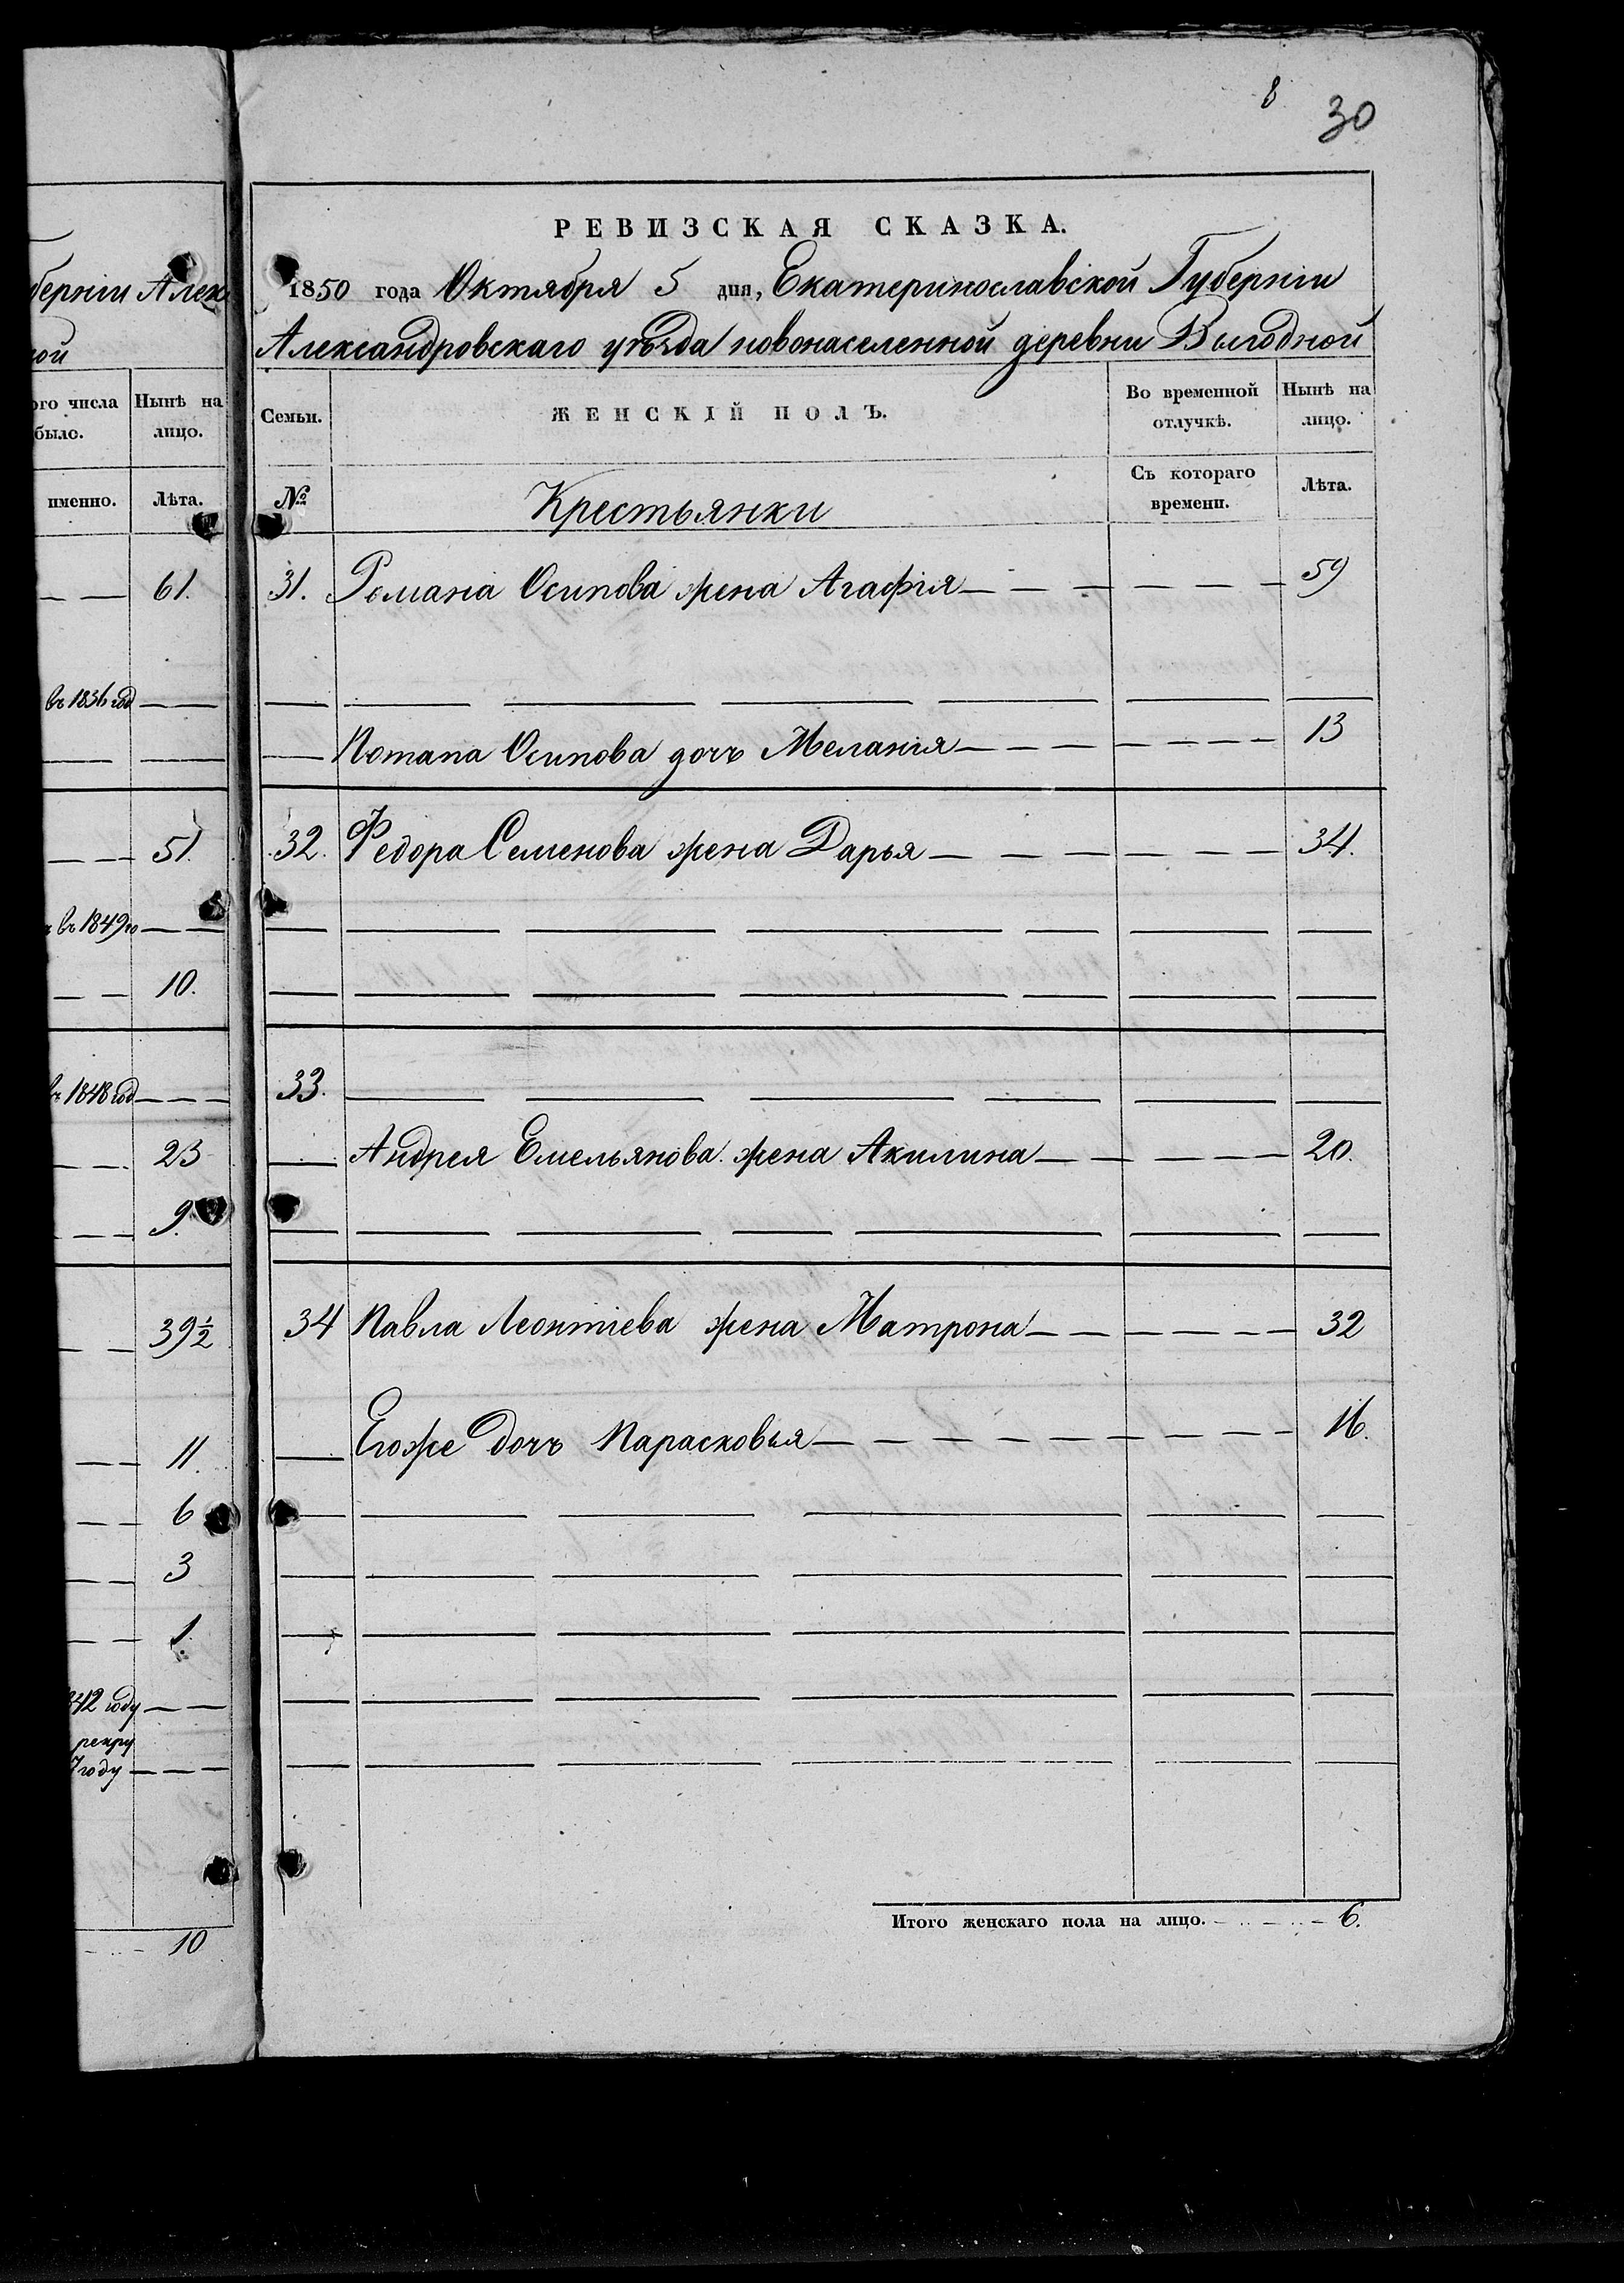 8 30
РЕВИЗСКАЯ СКАЗКА.
1850 года Октября 5 дня, Екатеринославской Губерніи
Александровскаго уѣзда новонаселенной деревни Выгодной
Семьи. ЖЕНСКІЙ ПОЛЪ. Во временной отлучкѣ. Нынѣ на лицо.
№ Крестьянки Съ котораго времени. Лѣта.
31. Романа Осипова жена Агафія 59
Потапа Осипова дочь Меланія 13
32. Федора Семенова жена Дарья 34.
33.
Андрея Емельянова жена Акилина 20.
34 Павла Леонтіева жена Матрона 32
Егоже дочь Парасковья 16.
Итого женскаго пола на лицо. 6.
берніи Алек
ой
ого числа было. Нынѣ на лицо.
именно. Лѣта.
61.
въ 1836 год
51.
въ 1849 го
10.
въ 1848 год
23
9.
39½
11.
6
3
1.
842 году
рекру
7 году
10